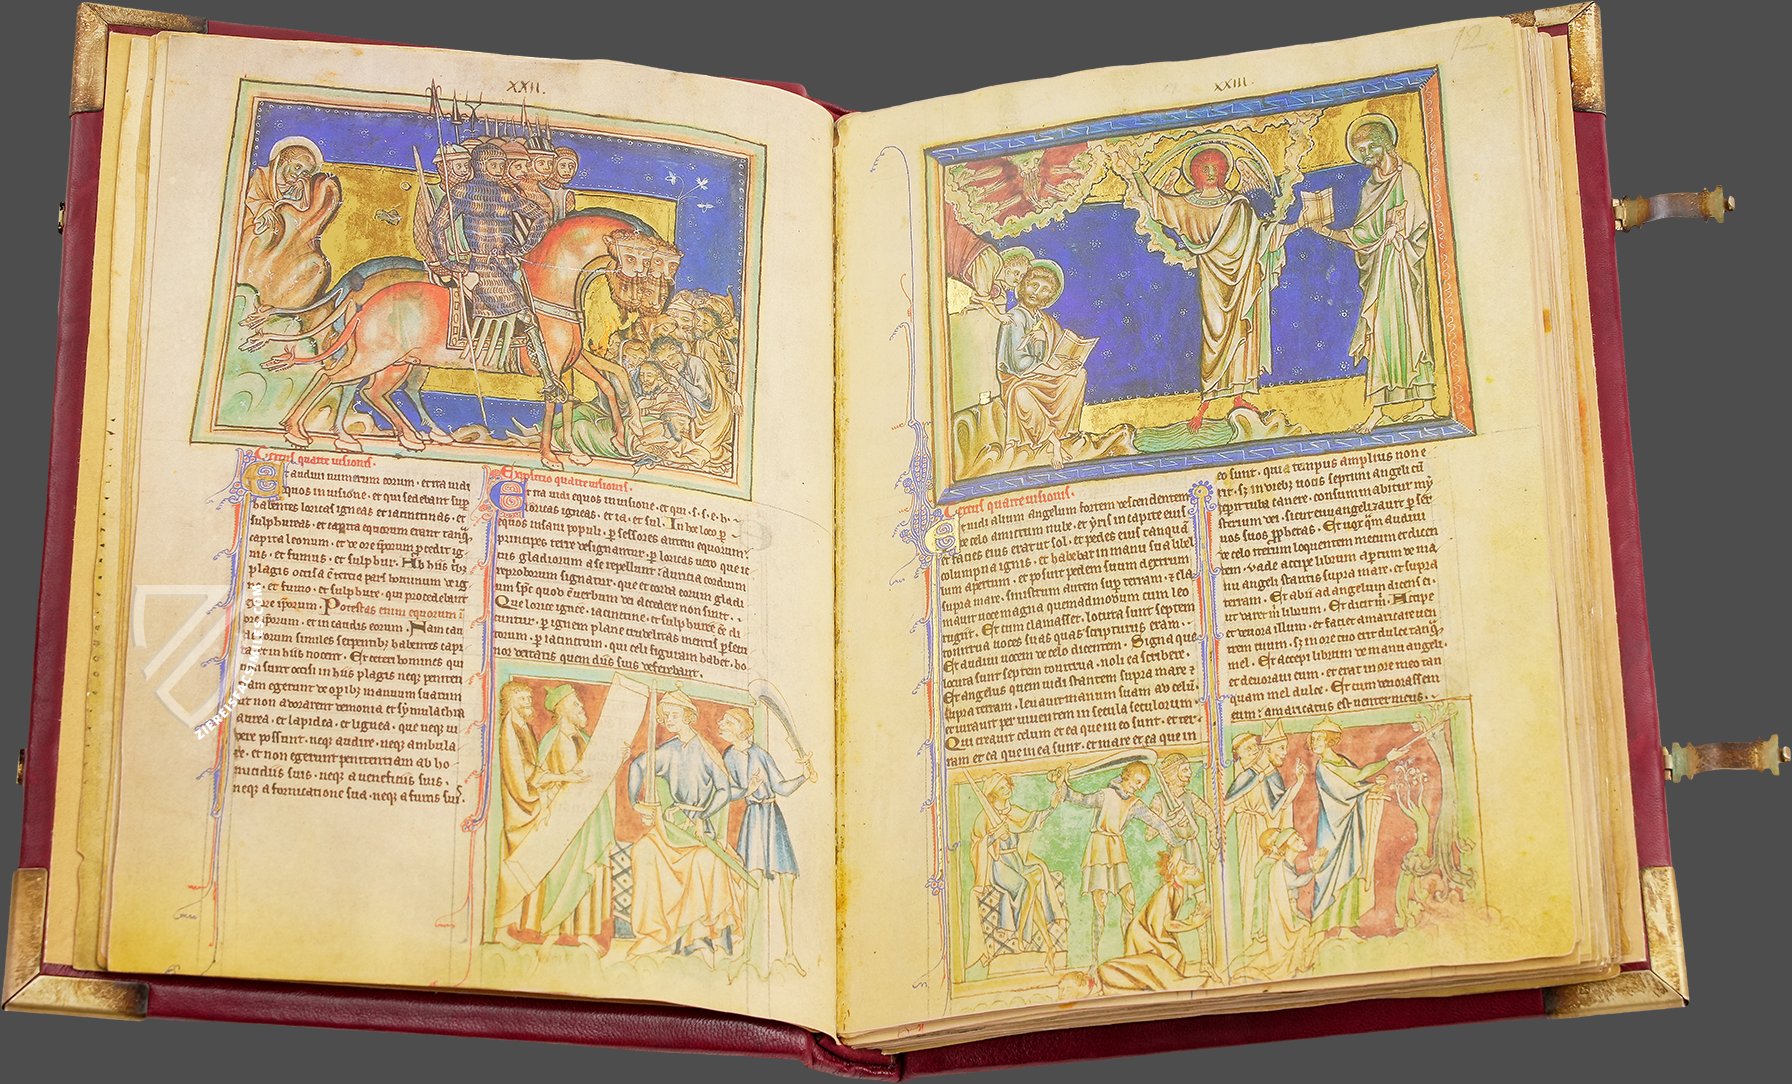 XXII.
Textus quarte visionis.
Et audivi numerum eorum. et ita vidi
equos in visione. et qui sedebant sup
habentes loricas igneas et iacinctinas. et
sulphureas. et capita equorum erant tanq̄
capita leonum. et de ore ip̄orum p̄cedit ig
nis. et fumus. et sulphur. Ab hiis t̄bȝ
plagis occisa ē tertia pars hominum de ig
ne. et fumo. et sulphure. qui procedebant
de ore ip̄orum. Potestas enim equorum ī
ore ip̄orum. et in caudis eorum. Nam cau
de eorum similes serpentibȝ habentes capi
ta et in hiis nocent. Et ceteri homines qui
non sunt occisi in hiis plagis neqȝ peniten
tiam egerunt de op̄ibȝ manuum suarum
ut non adorarent demonia et symulachra
aurea. et lapidea. et lignea. que neqȝ vi
dere possunt. neqȝ audire. neqȝ ambula
re. et non egerunt penitentiam ab ho
micidiis suis. neqȝ a veneficiis suis.
neqȝ a fornicatione sua. neqȝ a furtis suis.
Expositio quarte visionis.
Et ita vidi equos in visione. et qui. s. s. e. h.
loricas igneas. et ia. et sul. In hoc loco p̄
equos iniusti populi. p̄ sessores autem equorum
principes terre designantur. p̄ loricas vero que ic
tus gladiorum a se repellunt. duricia cordium
reproborum signatur. que et corda eorum gladi
um sp̄c quod ē verbum dei accedere non sinit.
Que lorice ignee. iacinctine. et sulphuree ēē di
cuntur. p̄ ignem plane crudelitas mentis p̄secu
torum. p̄ iacinctum. qui celi figuram habet. ho
nor deitatis quem diis suis deferebant.
XXIII.
12
Textus quarte visionis.
Et vidi alium angelum fortem descendentem
de celo amictum nube. et yris in capite eius
et facies eius erat ut sol. et pedes eius tanquā
columpna ignis. et habebat in manu sua libel
lum apertum. et posuit pedem suum dextrum
supra mare. sinistrum autem sup̄ terram. ⁊ cla
mavit voce magna quemadmodum cum leo
rugit. Et cum clamasset. locuta sunt septem
tonitrua voces suas quas scripturus eram.
Et audivi vocem de celo dicentem. Signa que
locuta sunt septem tonitrua. noli ea scribere.
Et angelus quem vidi stantem supra mare ⁊
supra terram. levavit manum suam ad celū.
et iuravit per viventem in secula seculorum
Qui creavit celum et ea que in eo sunt. et ter
ram et ea que in ea sunt. et mare et ea que in
eo sunt. quia tempus amplius non e
rit. sȝ in diebȝ vocis septimi angeli cū
ceperit tuba canere. consummabitur my
sterium dei. sicut evangelizavit p̄ ser
vos suos p̄phetas. Et vox q̄m audivi
de celo iterum loquentem mecum et dicen
tem. vade accipe librum apertum de ma
nu angeli stantis supra mare. et supra
terram. Et abii ad angelum dicens ei.
ut daret m̄ librum. Et dicit m̄. Accipe
et devora illum. et faciet amaricare ven
trem tuum. sȝ in ore tuo erit dulce tanq̄
mel. Et accepi librum de manu angeli.
et devoravi eum. et erat in ore meo tan
quam mel dulce. Et cum devorassem
eum. amaricatus est venter meus.
ZIEREISFACSIMILES.COM